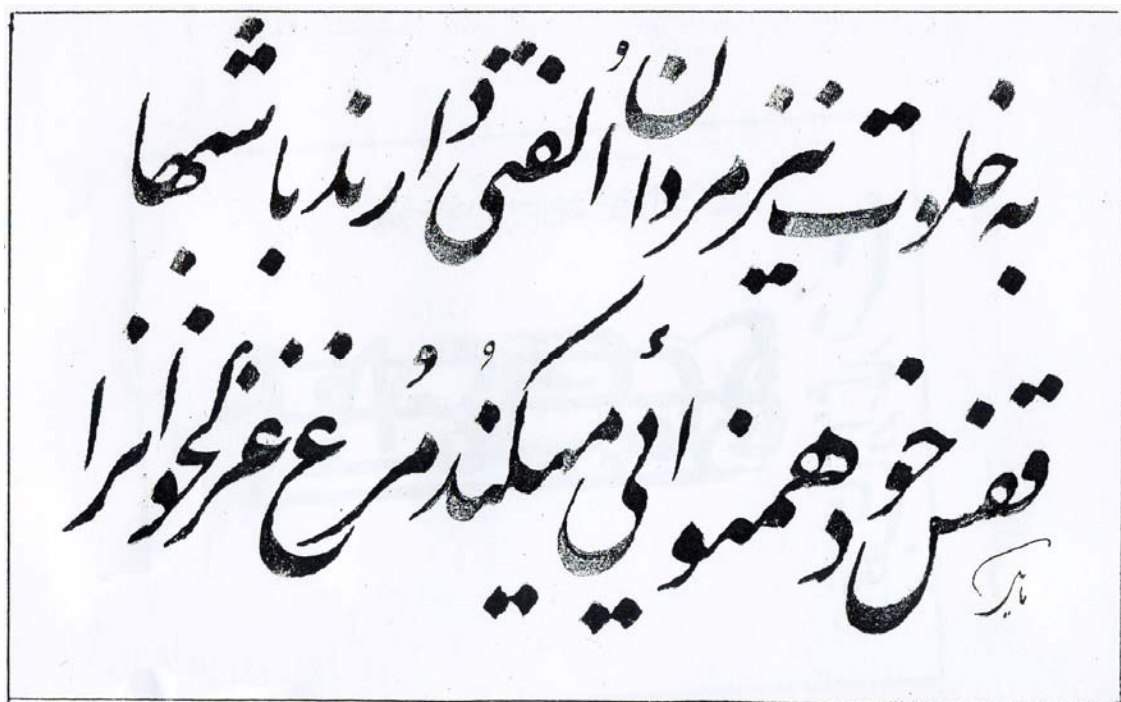 به خلوت نیز مردان اُلفتی دارند با شبها
قفس خود همنوائی میکُند مُرغ غزلخوانرا